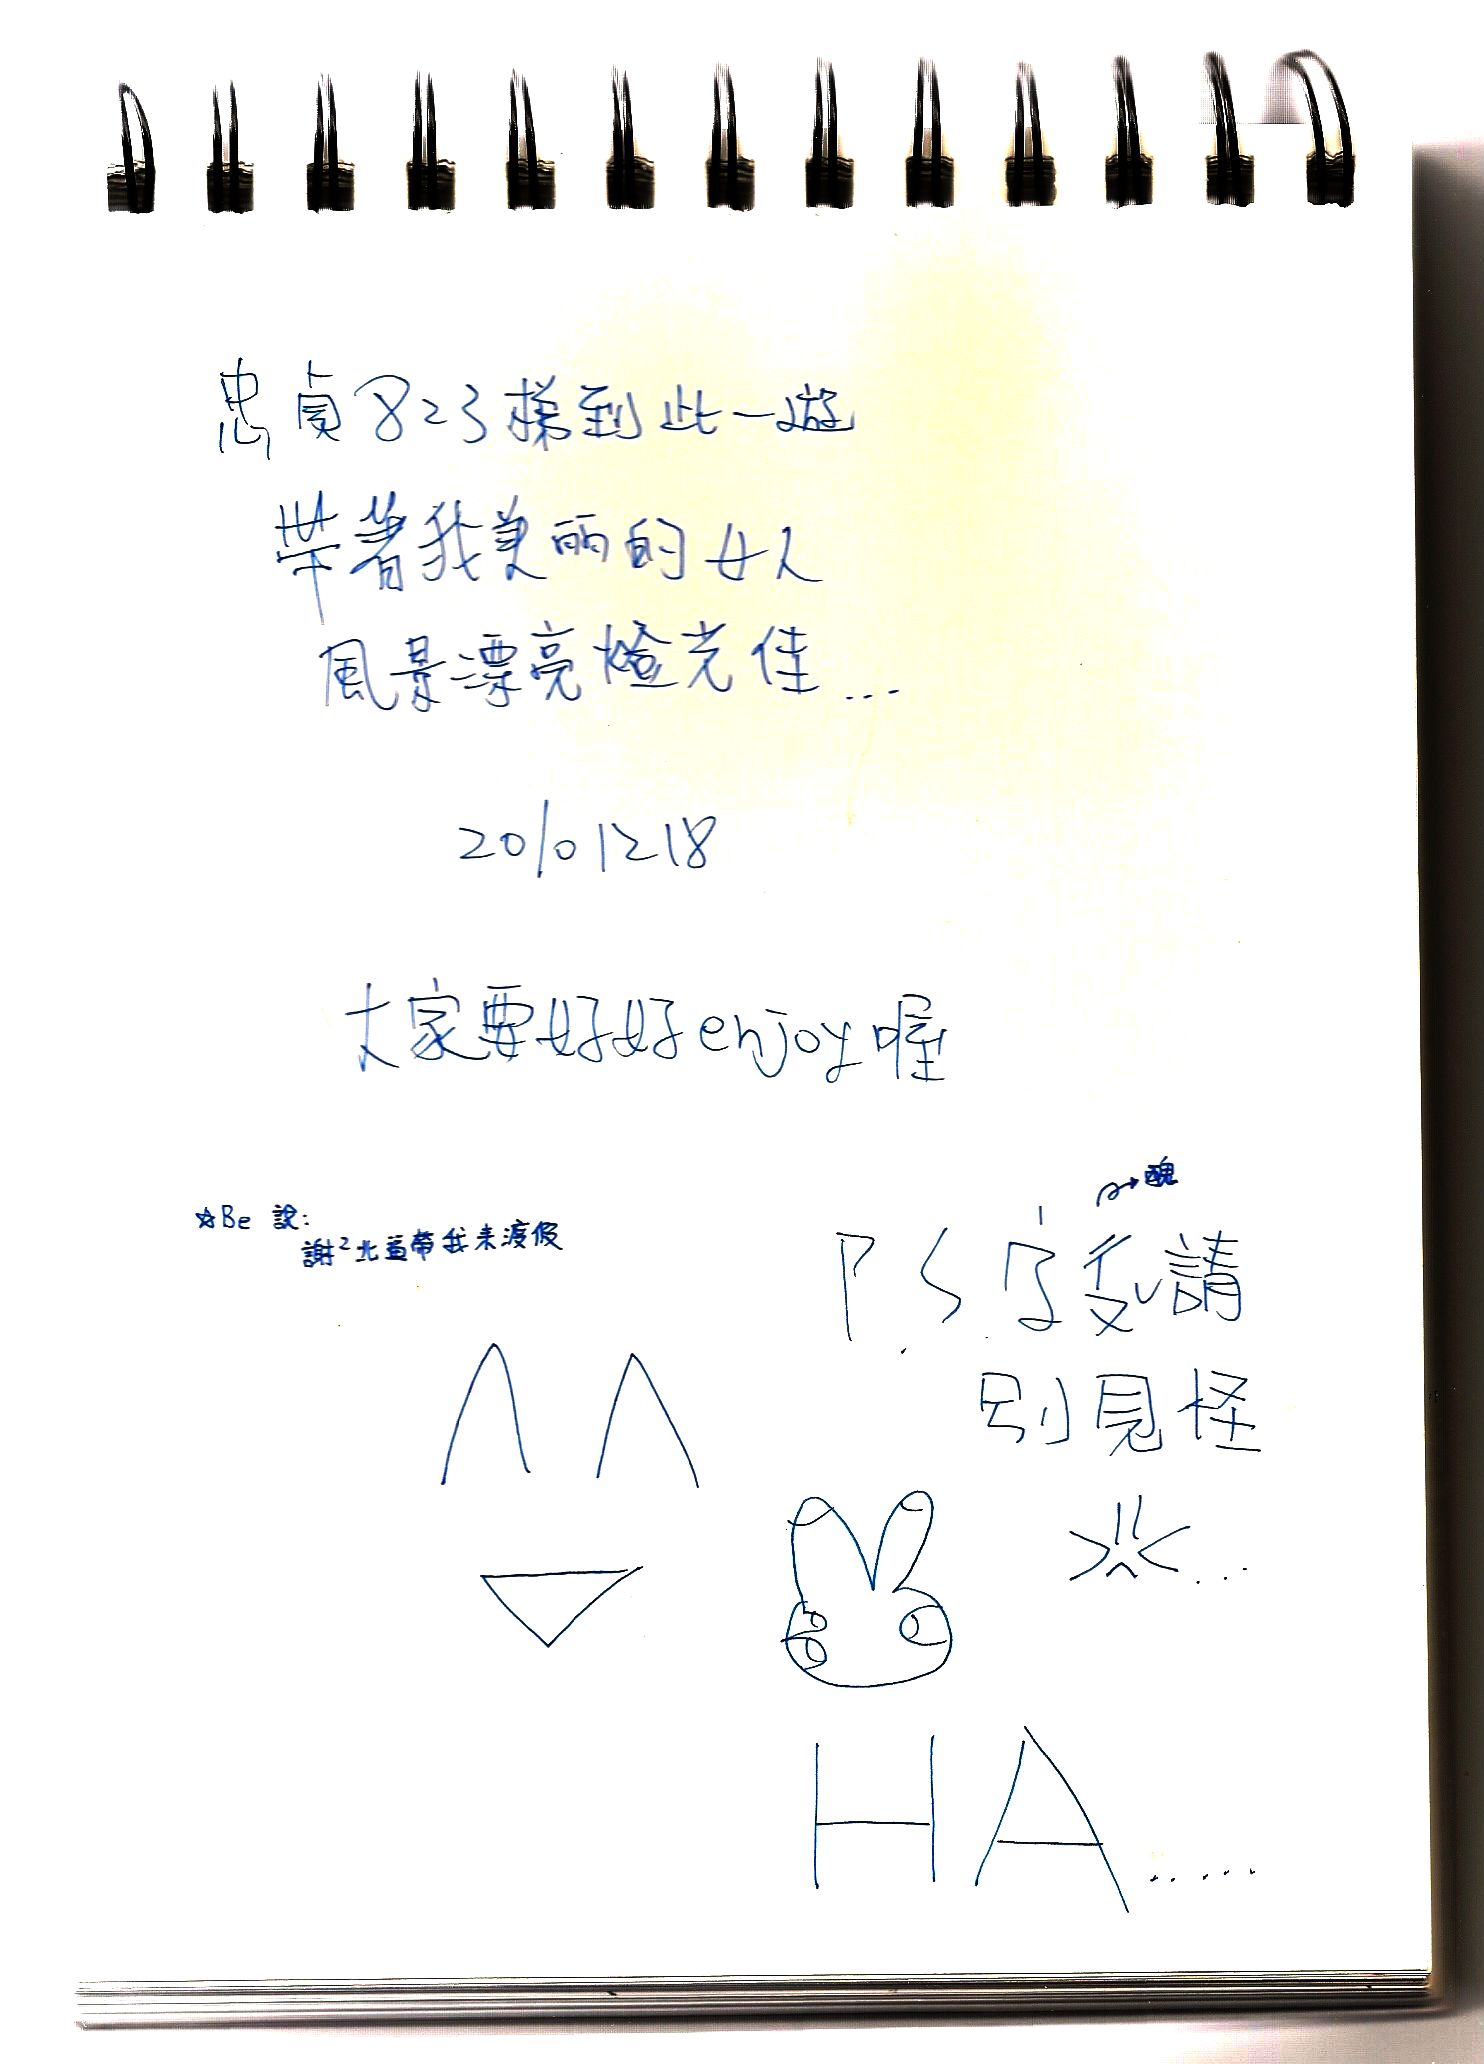 忠貞823梯到此一遊
帶著我美丽的女人
風景漂亮燈光佳...
20101218
大家要好好enjoy喔
☆Be 說:
謝²北 帶我來渡假
→醜
P.S.字亂請
別見怪
...
HA.....